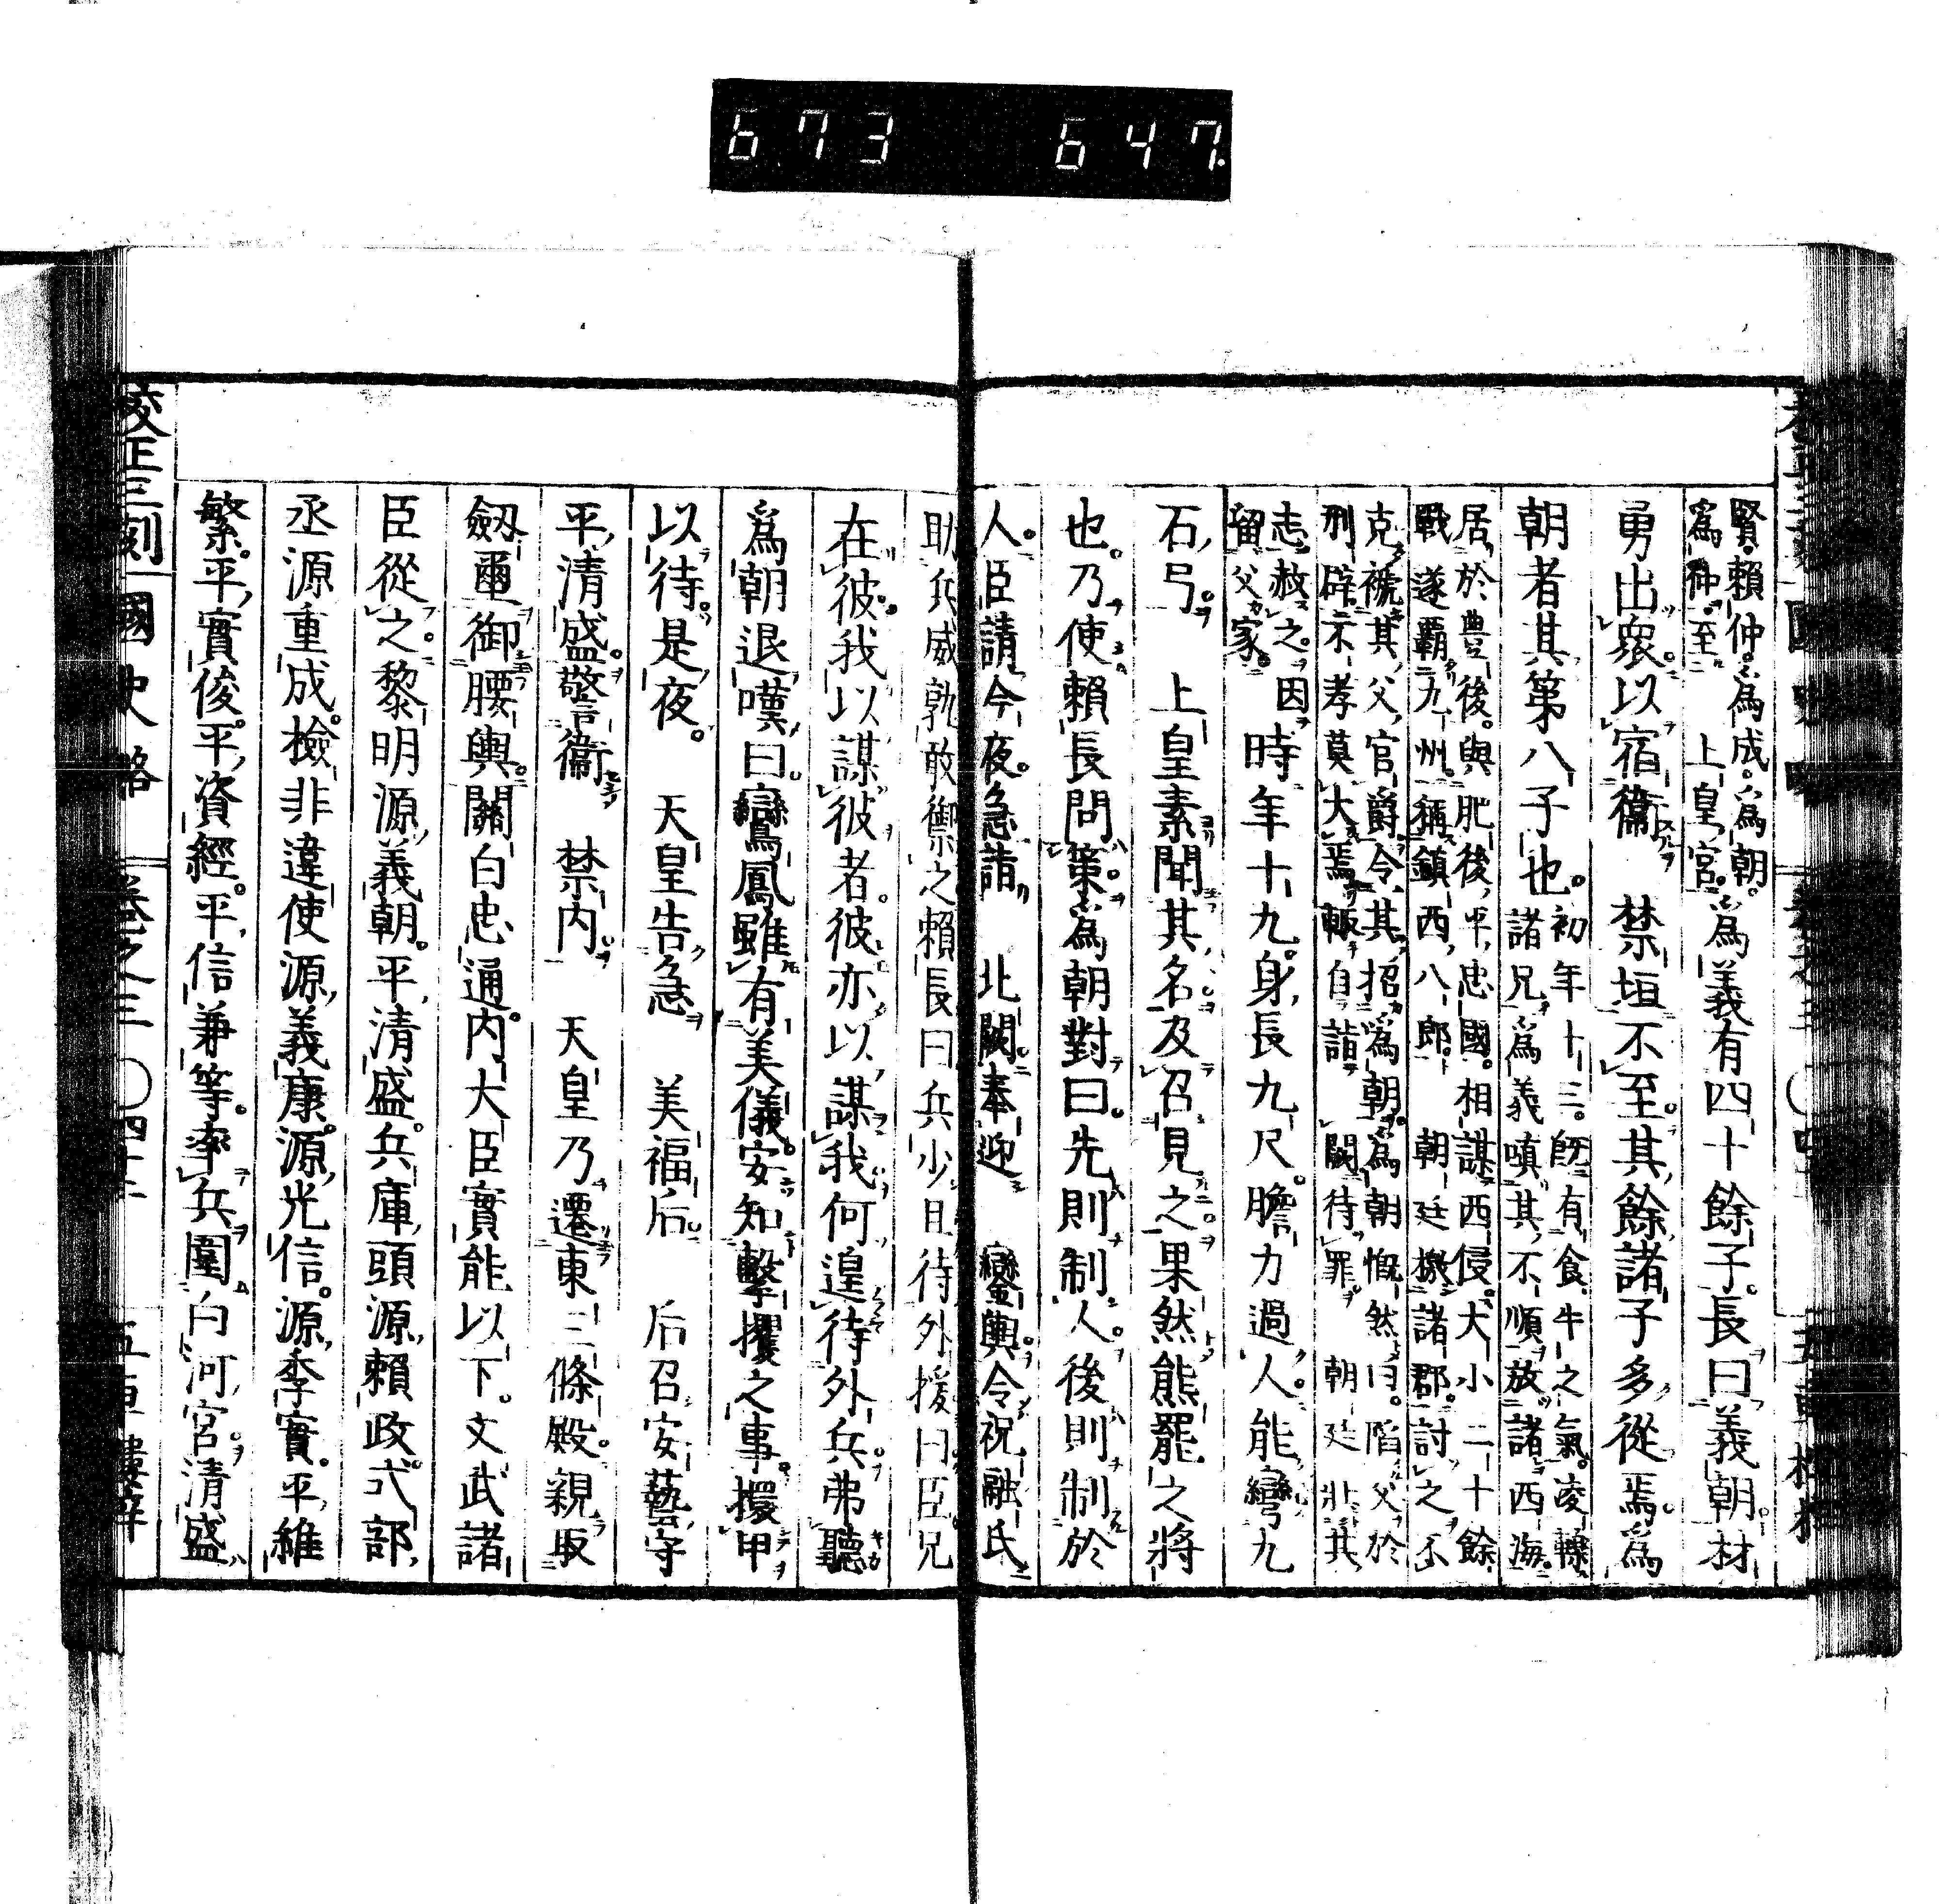 673 647
賢。賴仲。爲成。爲朝。
爲仲。至 上皇宮。
爲義有四十餘子。長曰義朝。材
勇出衆。以宿衞 禁垣不至。其餘諸子多從焉。爲
朝者其第八子也。
初年十三。既有食牛之氣。凌轢
諸兄。爲義嗔其不順。放諸西海。
居於豊後。與肥後平忠國。相謀西侵。大小二十餘
戰。遂覇九州。稱鎮西八郎。 朝廷檄諸郡。討之不
克。褫其父官爵。令其招爲朝。爲朝慨然曰。陷父於
刑辟。不孝莫大焉。輙自詣 闕待罪。 朝廷壯其
志。赦之。因
留父家。
時年十九。身長九尺。膽力過人。能彎九
石弓。 上皇素聞其名。及召見之。果然熊羆之將
也。乃使賴長問策。爲朝對曰。先則制人。後則制於
人。臣請今夜。急詣 北闕。奉迎 鑾輿。令祝融氏
助兵威。孰敢禦之。賴長曰。兵少。且待外援。曰。臣兄
在彼。我以謀彼者。彼亦以謀我。何遑待外兵。弗聽
爲朝退嘆曰。鸞鳳雖有美儀。安知擊攫之事。擐甲
以待。是夜。 天皇告急 美福后 后召安藝守
平清盛。警衞 禁内。 天皇乃遷東三條殿。親取
劔璽御腰輿。關白忠通。内大臣實能以下。文武諸
臣從之。黎明源義朝。平清盛。兵庫頭源賴政。式部
丞源重成。檢非違使源義康。源光信。源季實。平維
繁。平實俊。平資經。平信兼等。率兵圍白河宮。清盛
校正三刻 國史略 卷之三 〇四十二 五車樓梓